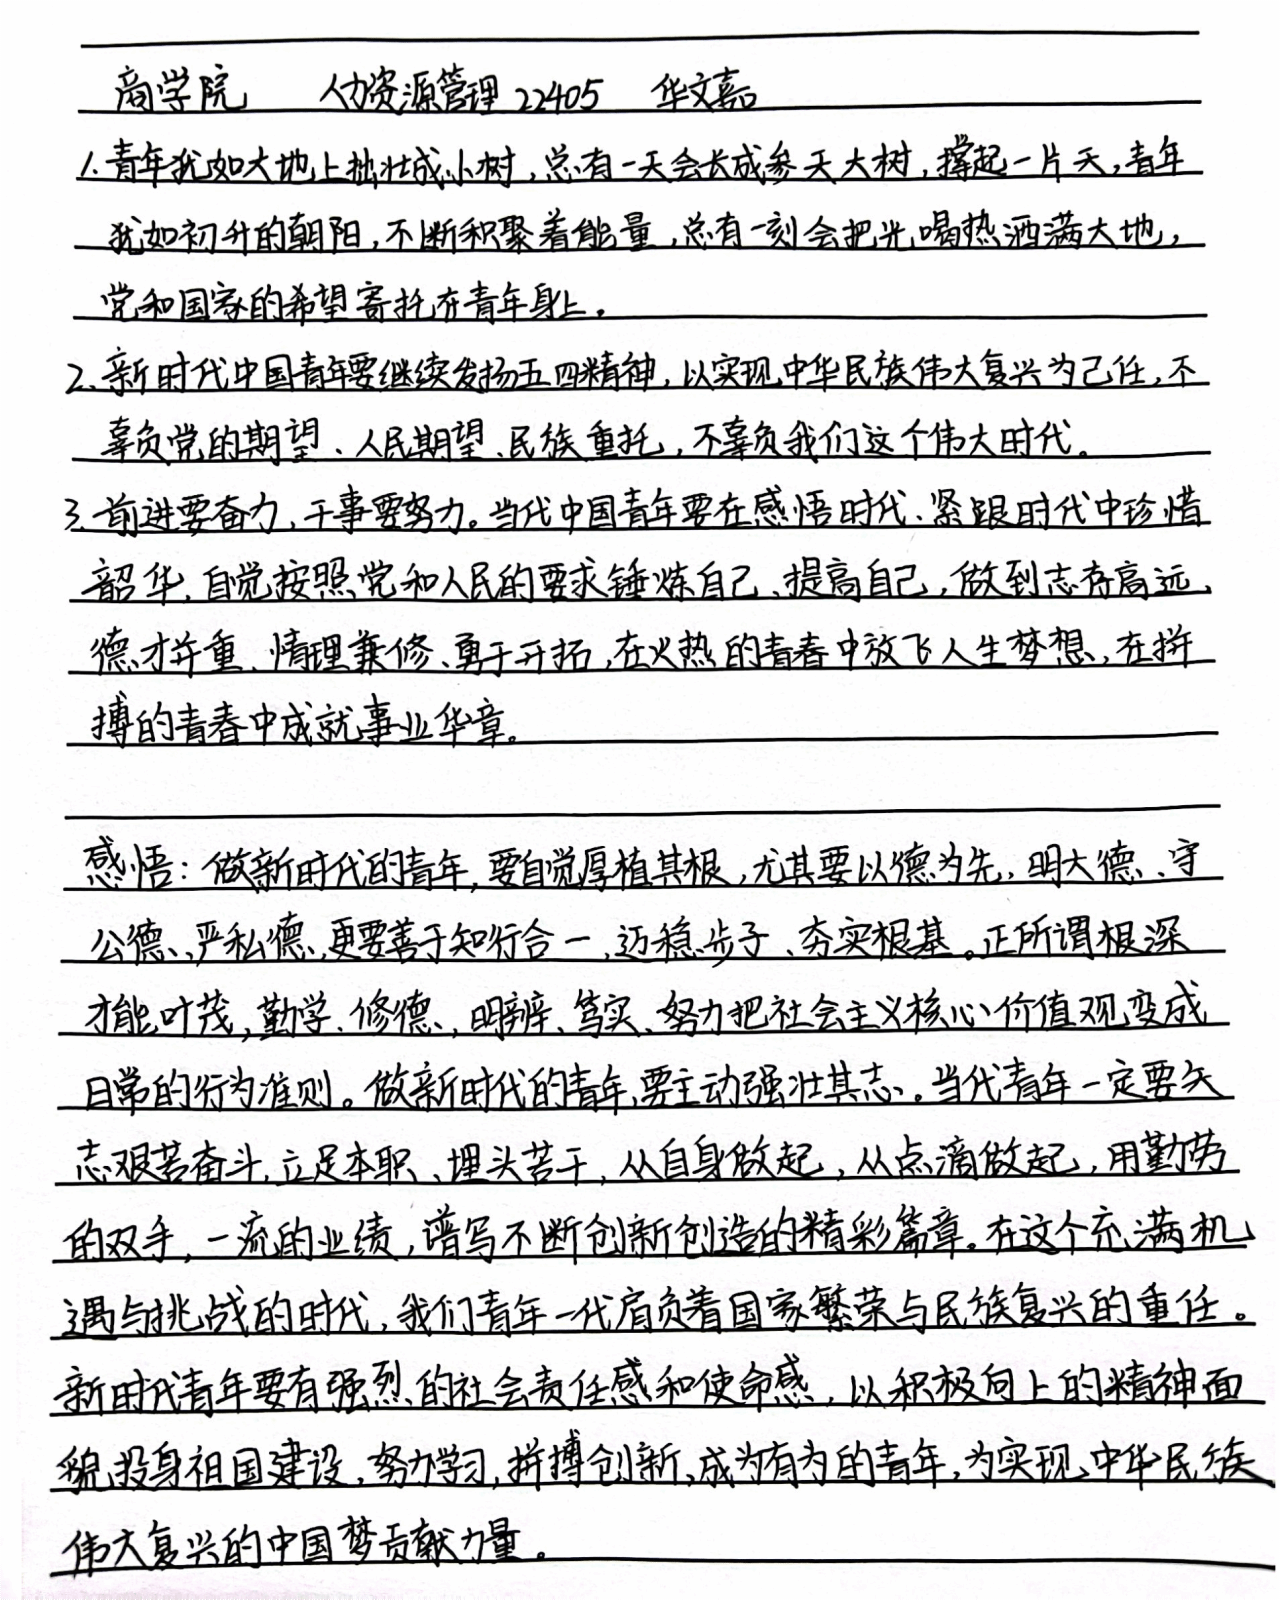 商学院 人力资源管理22405 华文嘉
1.青年犹如大地上拙壮成小树，总有一天会长成参天大树，撑起一片天，青年
犹如初升的朝阳，不断积聚着能量，总有一刻会把光喝热洒满大地，
党和国家的希望寄托在青年身上。
2、新时代中国青年要继续发扬五四精神，以实现中华民族伟大复兴为己任，不
辜负党的期望、人民期望、民族重托，不辜负我们这个伟大时代。
3、前进要奋力，干事要努力。当代中国青年要在感悟时代、紧跟时代中珍惜
韶华，自觉按照党和人民的要求锤炼自己、提高自己，做到志存高远、
德才并重、情理兼修、勇于开拓，在火热的青春中放飞人生梦想，在拼
搏的青春中成就事业华章。
感悟：做新时代的青年，要自觉厚植其根，尤其要以德为先，明大德、守
公德、严私德、更要善于知行合一，迈稳步子、夯实根基。正所谓根深
才能叶茂，勤学、修德、明辨、笃实、努力把社会主义核心价值观变成
日常的行为准则。做新时代的青年，要主动强壮其志。当代青年一定要矢
志艰苦奋斗，立足本职、埋头苦干，从自身做起，从点滴做起，用勤劳
的双手，一流的业绩，谱写不断创新创造的精彩篇章。在这个充满机
遇与挑战的时代，我们青年一代肩负着国家繁荣与民族复兴的重任。
新时代青年要有强烈的社会责任感和使命感，以积极向上的精神面
貌投身祖国建设，努力学习，拼搏创新，成为有为的青年，为实现中华民族
伟大复兴的中国梦贡献力量。